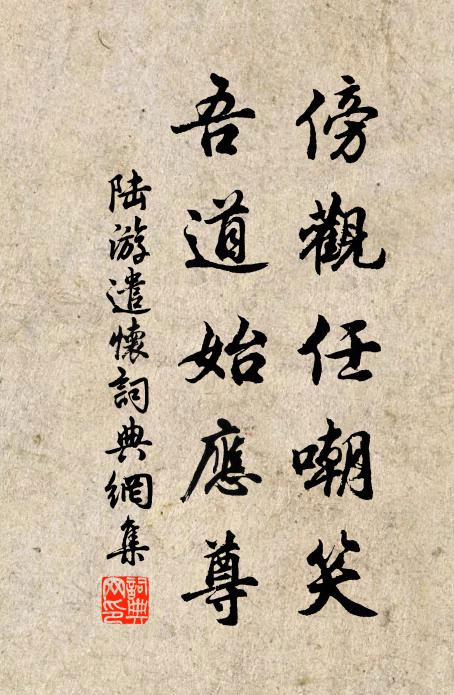 傍觀任嘲笑
吾道始應尊
陆游遣懷詞典網集
詞典網印